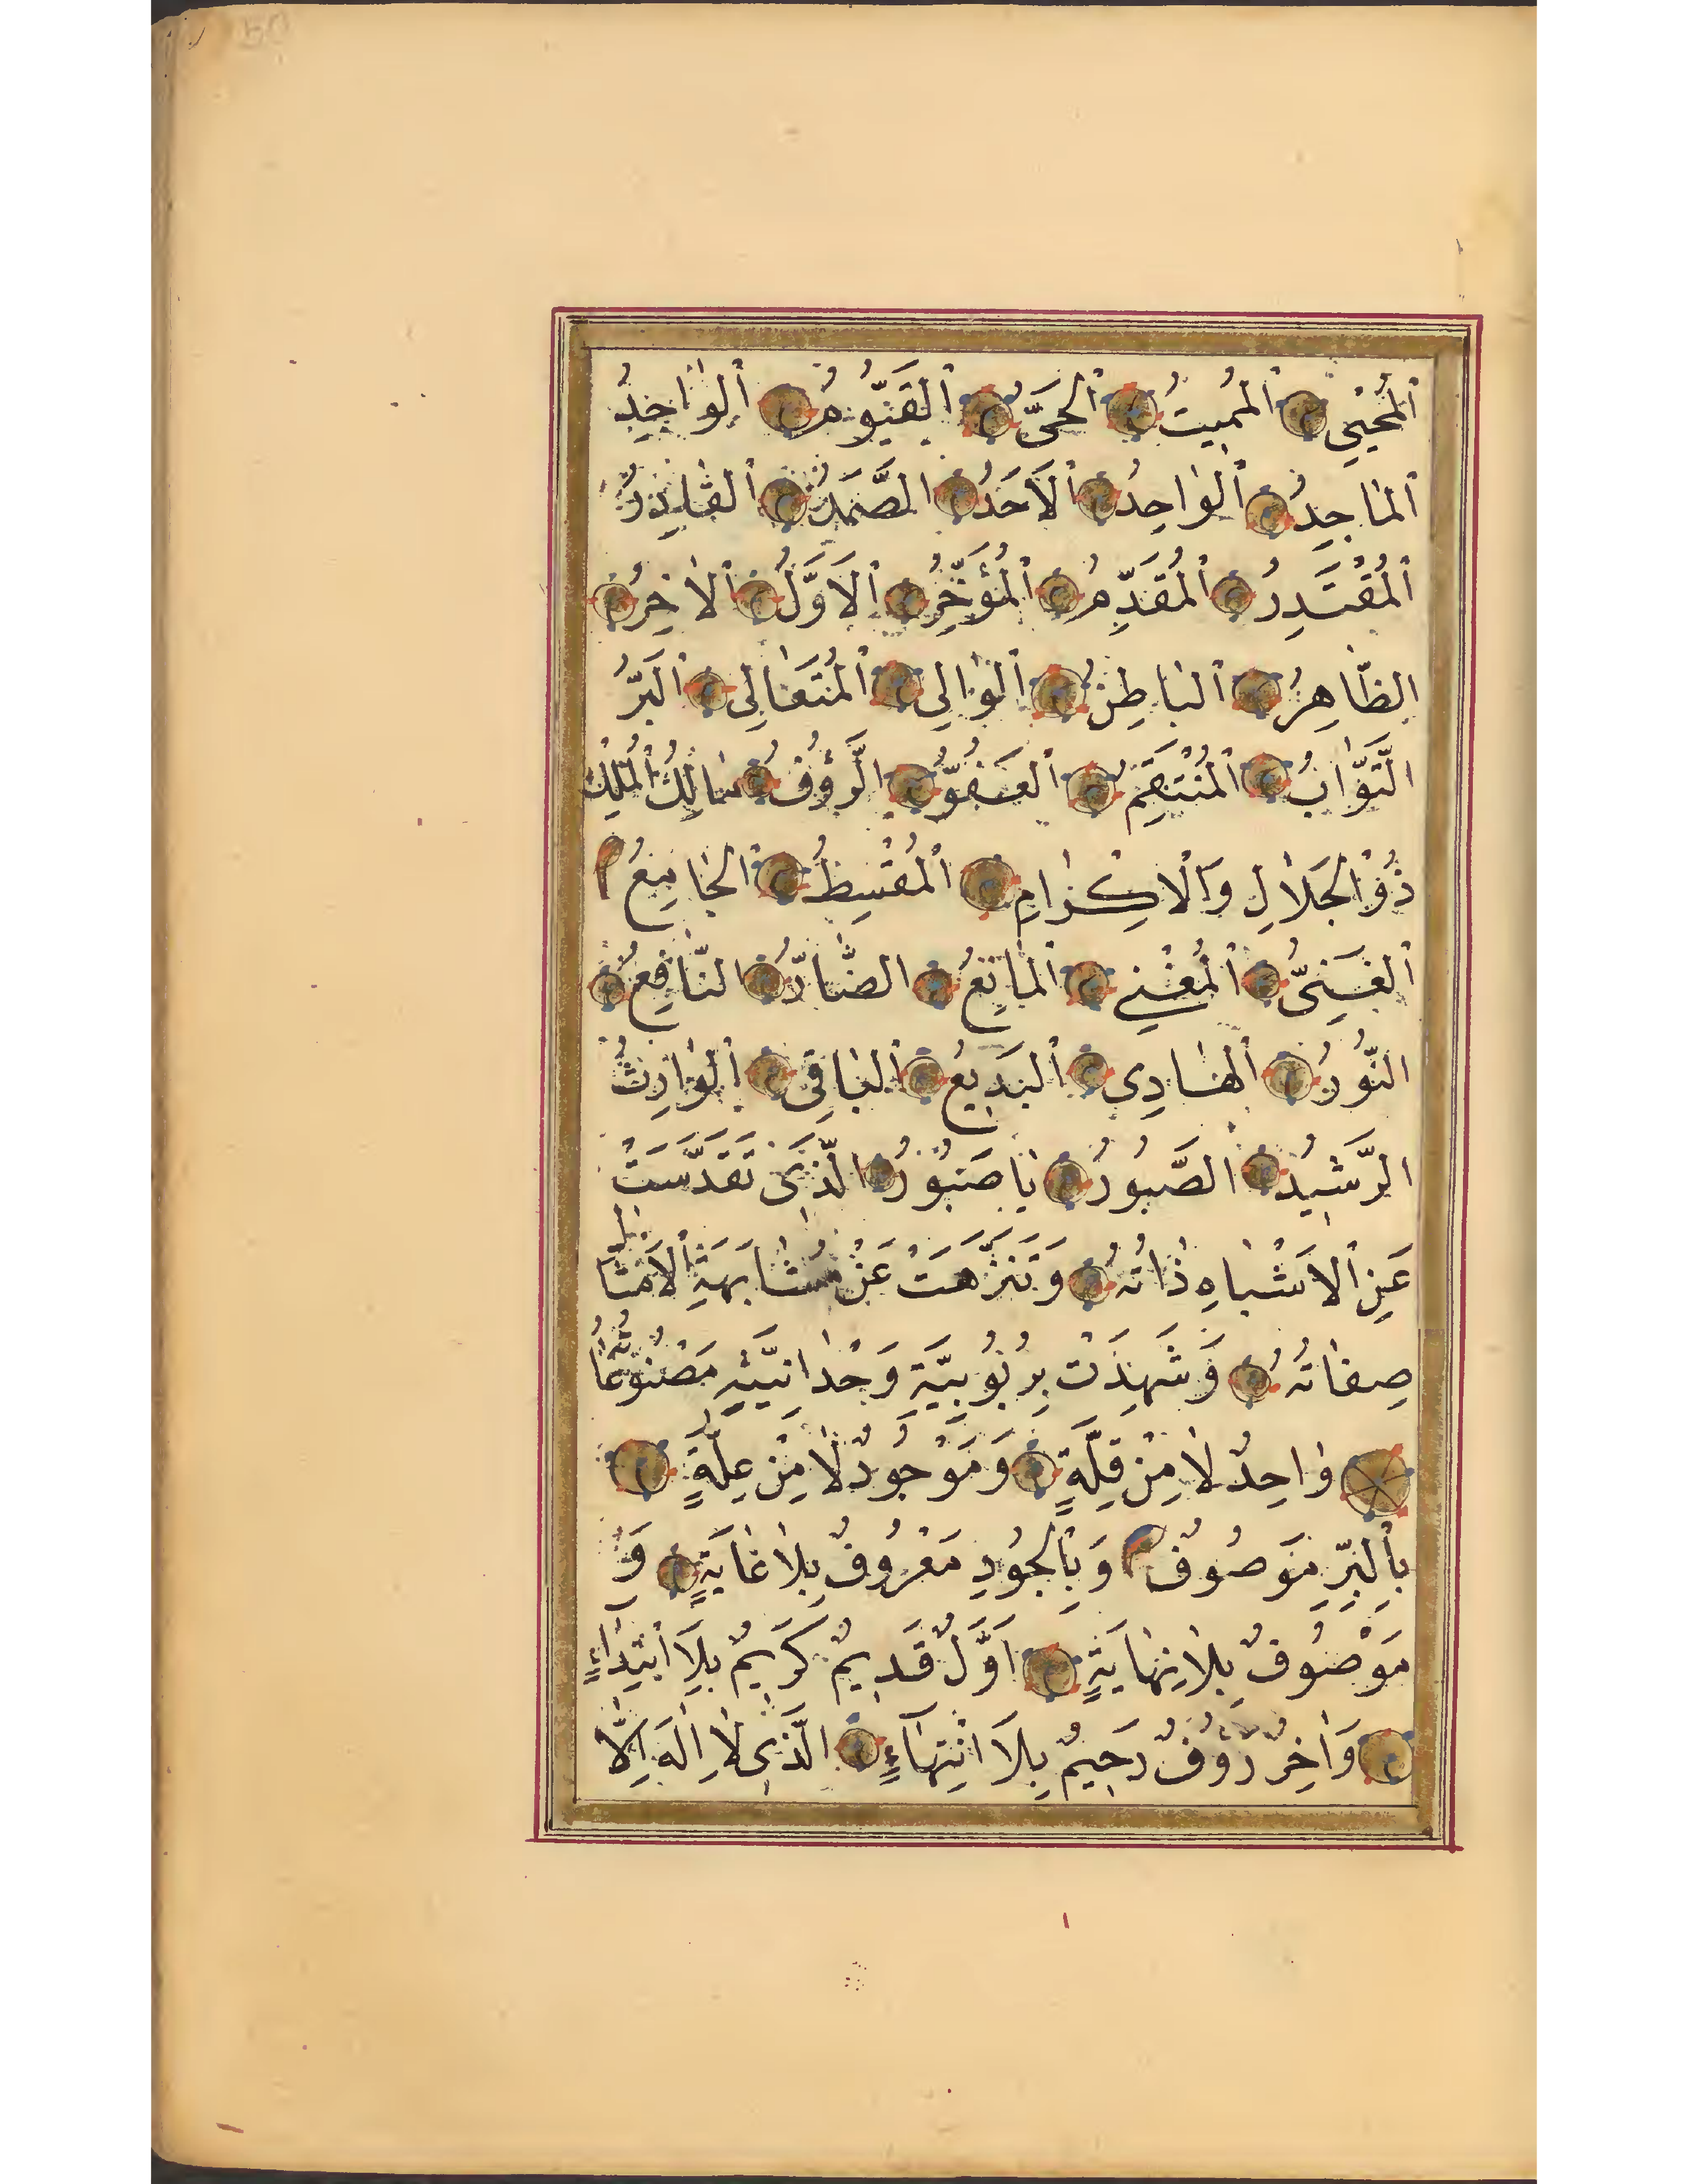 اَلْمُحْيِي اَلْمُمِيتُ اَلْحَىُّ اَلْقَيُّومُ اَلْوَاجِدُ
اَلْمَاجِدُ اَلْوَاحِدُ اَلْاَحَدُ الصَّمَدُ اَلْقَادِرُ
اَلْمُقْتَدِرُ اَلْمُقَدِّمُ اَلْمُؤَخِّرُ اَلْاَوَّلُ اَلْاٰخِرُ
الظَّاهِرُ اَلْبَاطِنُ اَلْوَالِى اَلْمُتَعَالِى اَلْبَرُّ
التَّوَّابُ اَلْمُنْتَقِمُ اَلْعَفُوُّ الرَّؤُفُ مَالِكُ الْمُلْكِ
ذُو الْجَلَالِ وَالْاِكْرَامِ اَلْمُقْسِطُ اَلْجَامِعُ
اَلْغَنِىُّ اَلْمُغْنِي اَلْمَانِعُ الضَّارُّ النَّافِعُ
النُّورُ اَلْهَادِى اَلْبَدِيعُ اَلْبَاقِى اَلْوَارِثُ
الرَّشِيدُ الصَّبُورُ يَا صَبُورُ الَّذِى تَقَدَّسَتْ
عَنِ الْاَشْبَاهِ ذَاتُهُ وَتَنَزَّهَتْ عَنْ مُشَابَهَةِ الْاَمْثَالِ
صِفَاتُهُ وَشَهِدَتْ بِرُبُوبِيَّةِ وَحْدَانِيَّتِهِ مَصْنُوعَاتُهُ
وَاحِدٌ لَا مِنْ قِلَّةٍ وَمَوْجُودٌ لَا مِنْ عِلَّةٍ
بِالْبِرِّ مَوْصُوفٌ وَبِالْجُودِ مَعْرُوفٌ بِلَا غَايَةٍ وَ
مَوْصُوفٌ بِلَا نِهَايَةٍ اَوَّلٌ قَدِيمٌ كَرِيمٌ بِلَا ابْتِدَاءٍ
وَاٰخِرٌ رَؤُفٌ رَحِيمٌ بِلَا انْتِهَاءٍ الَّذِى لَا اِلٰهَ اِلَّا